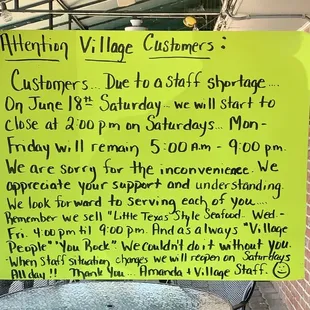 Attention Village Customers:
Customers... Due to a staff shortage....
On June 18th Saturday... we will start to
close at 2:00 pm on Saturdays... Mon-
Friday will remain 5:00 A.m - 9:00 pm.
We are sorry for the inconvenience. We
appreciate your support and understanding.
We look forward to serving each of you....
Remember we sell "Little Texas Style Seafood- Wed.-
Fri. 4:00 pm til 9:00 pm. And as always "Village
People" "You Rock". We couldn't do it without you.
-When staff situation changes we will reopen on Saturdays
All day!! Thank You... Amanda + Village Staff.